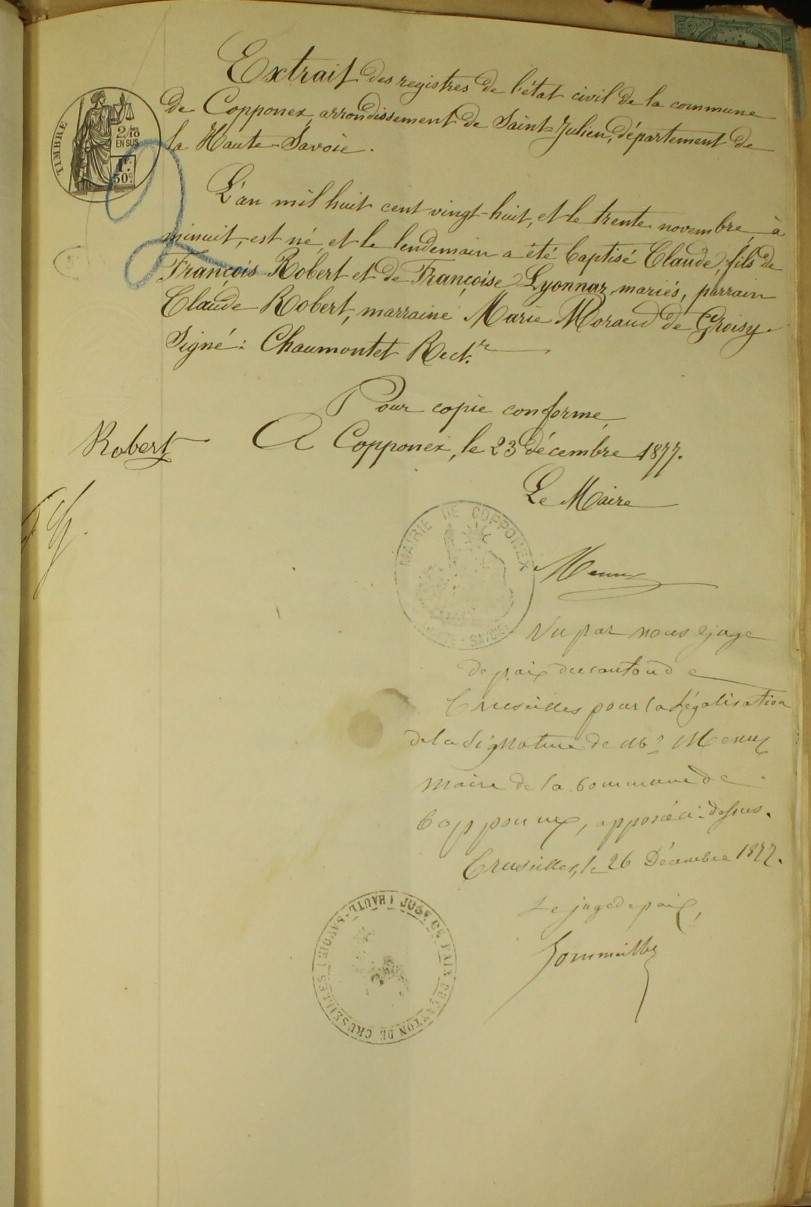 Extrait des registres de l'état civil de la commune
de Copponex arrondissement de Saint-Julien, département de
la Haute-Savoie.
TIMBRE
2/10
EN SUS
1F.
50c.
2
L'an mil huit cent vingt-huit, et le trente novembre, à
minuit, est né, et le lendemain a été baptisé Claude, fils de
François Robert et de Françoise Lyonnaz, mariés, parrain
Claude Robert, marraine Marie Moraud de Groisy.
Signé: Chaumontet Rect.r
Pour copie conforme,
Robert
A Copponex, le 23 décembre 1877.
Le Maire
MAIRIE DE COPPONEX
SAVOIE
Menux
Vu par nous juge
de paix du canton de
Cruseilles pour la légalisation
de la signature de Mr Menux
maire de la commune de
Copponex, apposée ci-dessus.
Cruseilles, le 26 Décembre 1877.
Le juge de paix,
JUGE DE PAIX DU CANTON DE CRUSEILLES (HAUTE-SAVOIE)